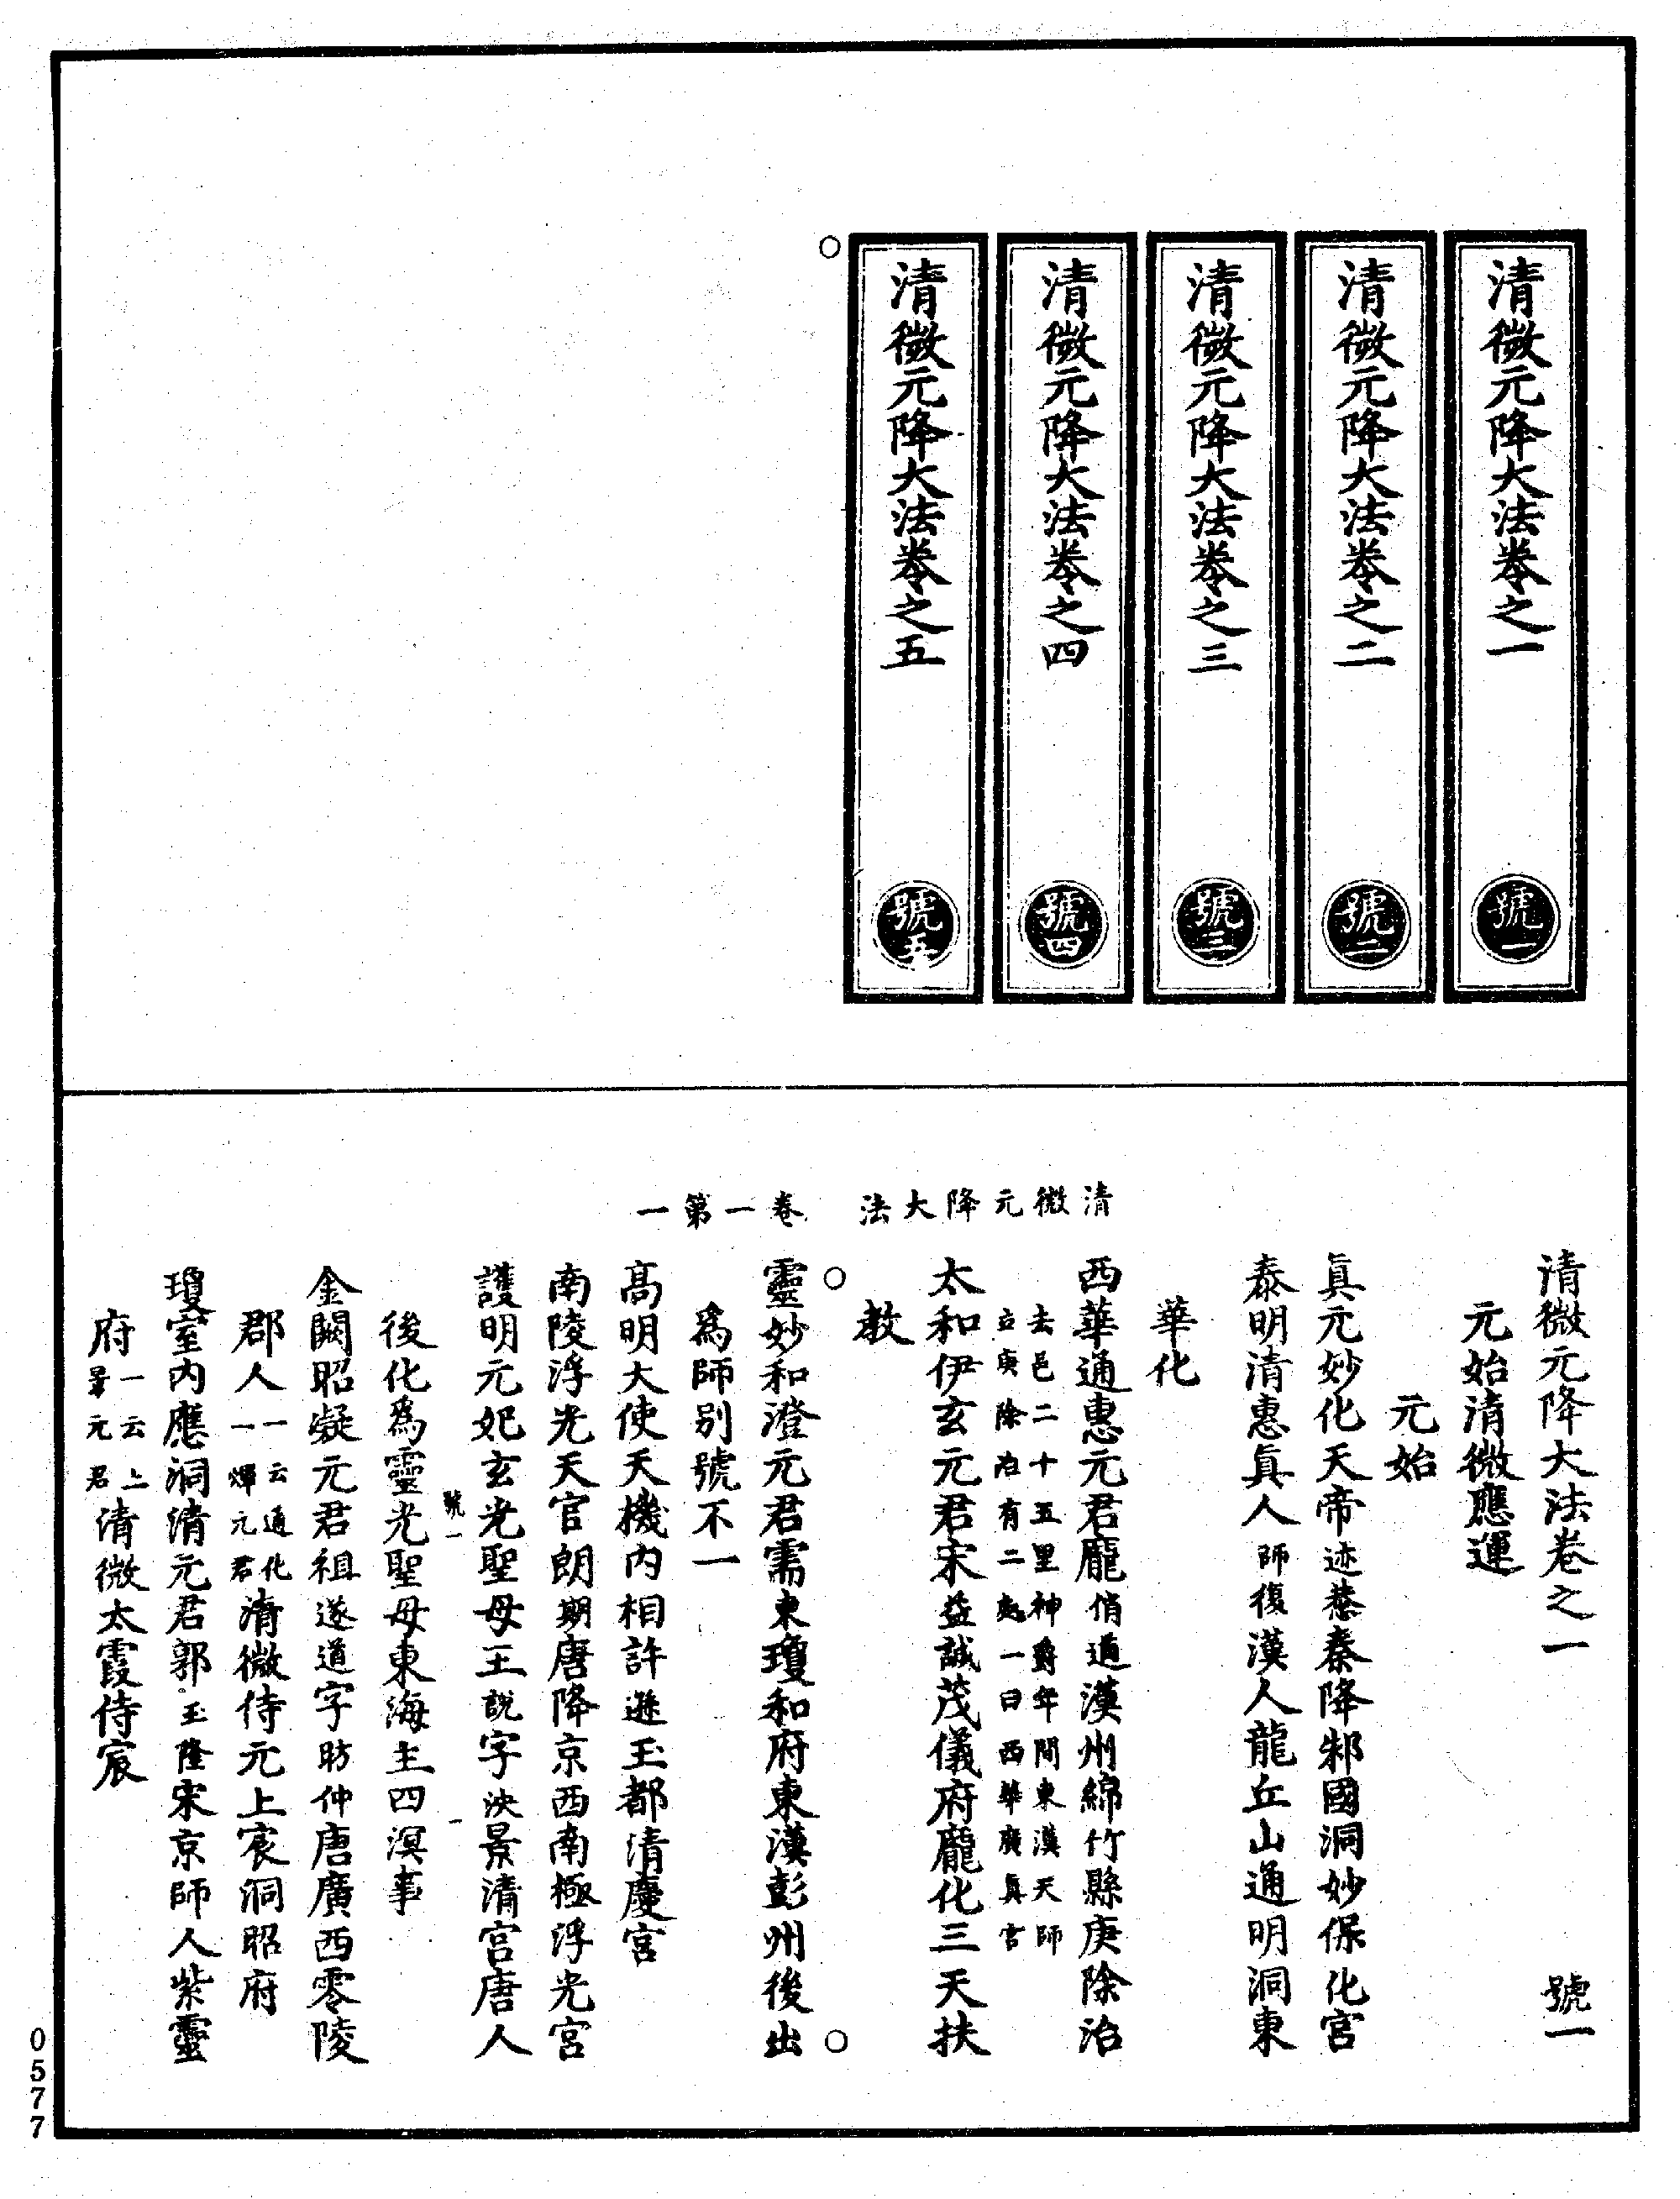 清微元降大法卷之一 號一
清微元降大法卷之二 號二
清微元降大法卷之三 號三
清微元降大法卷之四 號四
清微元降大法卷之五 號五
清微元降大法卷之一 號一
元始清微應運
元始
眞元妙化天帝迹菾秦降邾國洞妙保化宮
泰明清惠眞人師復漢人龍丘山通明洞東
華化
清微元降大法 卷一第一
西華通惠元君龐俏逌漢州綿竹縣庚除治
去邑二十五里神爵年間東漢天師
立庚除治有二處一曰西華廣眞宮
太和伊玄元君宋益誠茂儀府龐化三天扶
教
靈妙和澄元君需東瓊和府東漢彭州後出
爲師別號不一
高明大使天機內相許遜玉都清慶宮
南陵浮光天官朗期唐降京西南極浮光宮
護明元妃玄光聖母王說字泱景清宮唐人
號一 一
後化爲靈光聖母東海主四溟事
金闕昭凝元君祖遂道字昉仲唐廣西零陵
郡人一云通化
一輝元君清微侍元上宸洞昭府
瓊室內應洞清元君郭玉隆宋京師人紫靈
府一云上
景元君清微太霞侍宸
0577